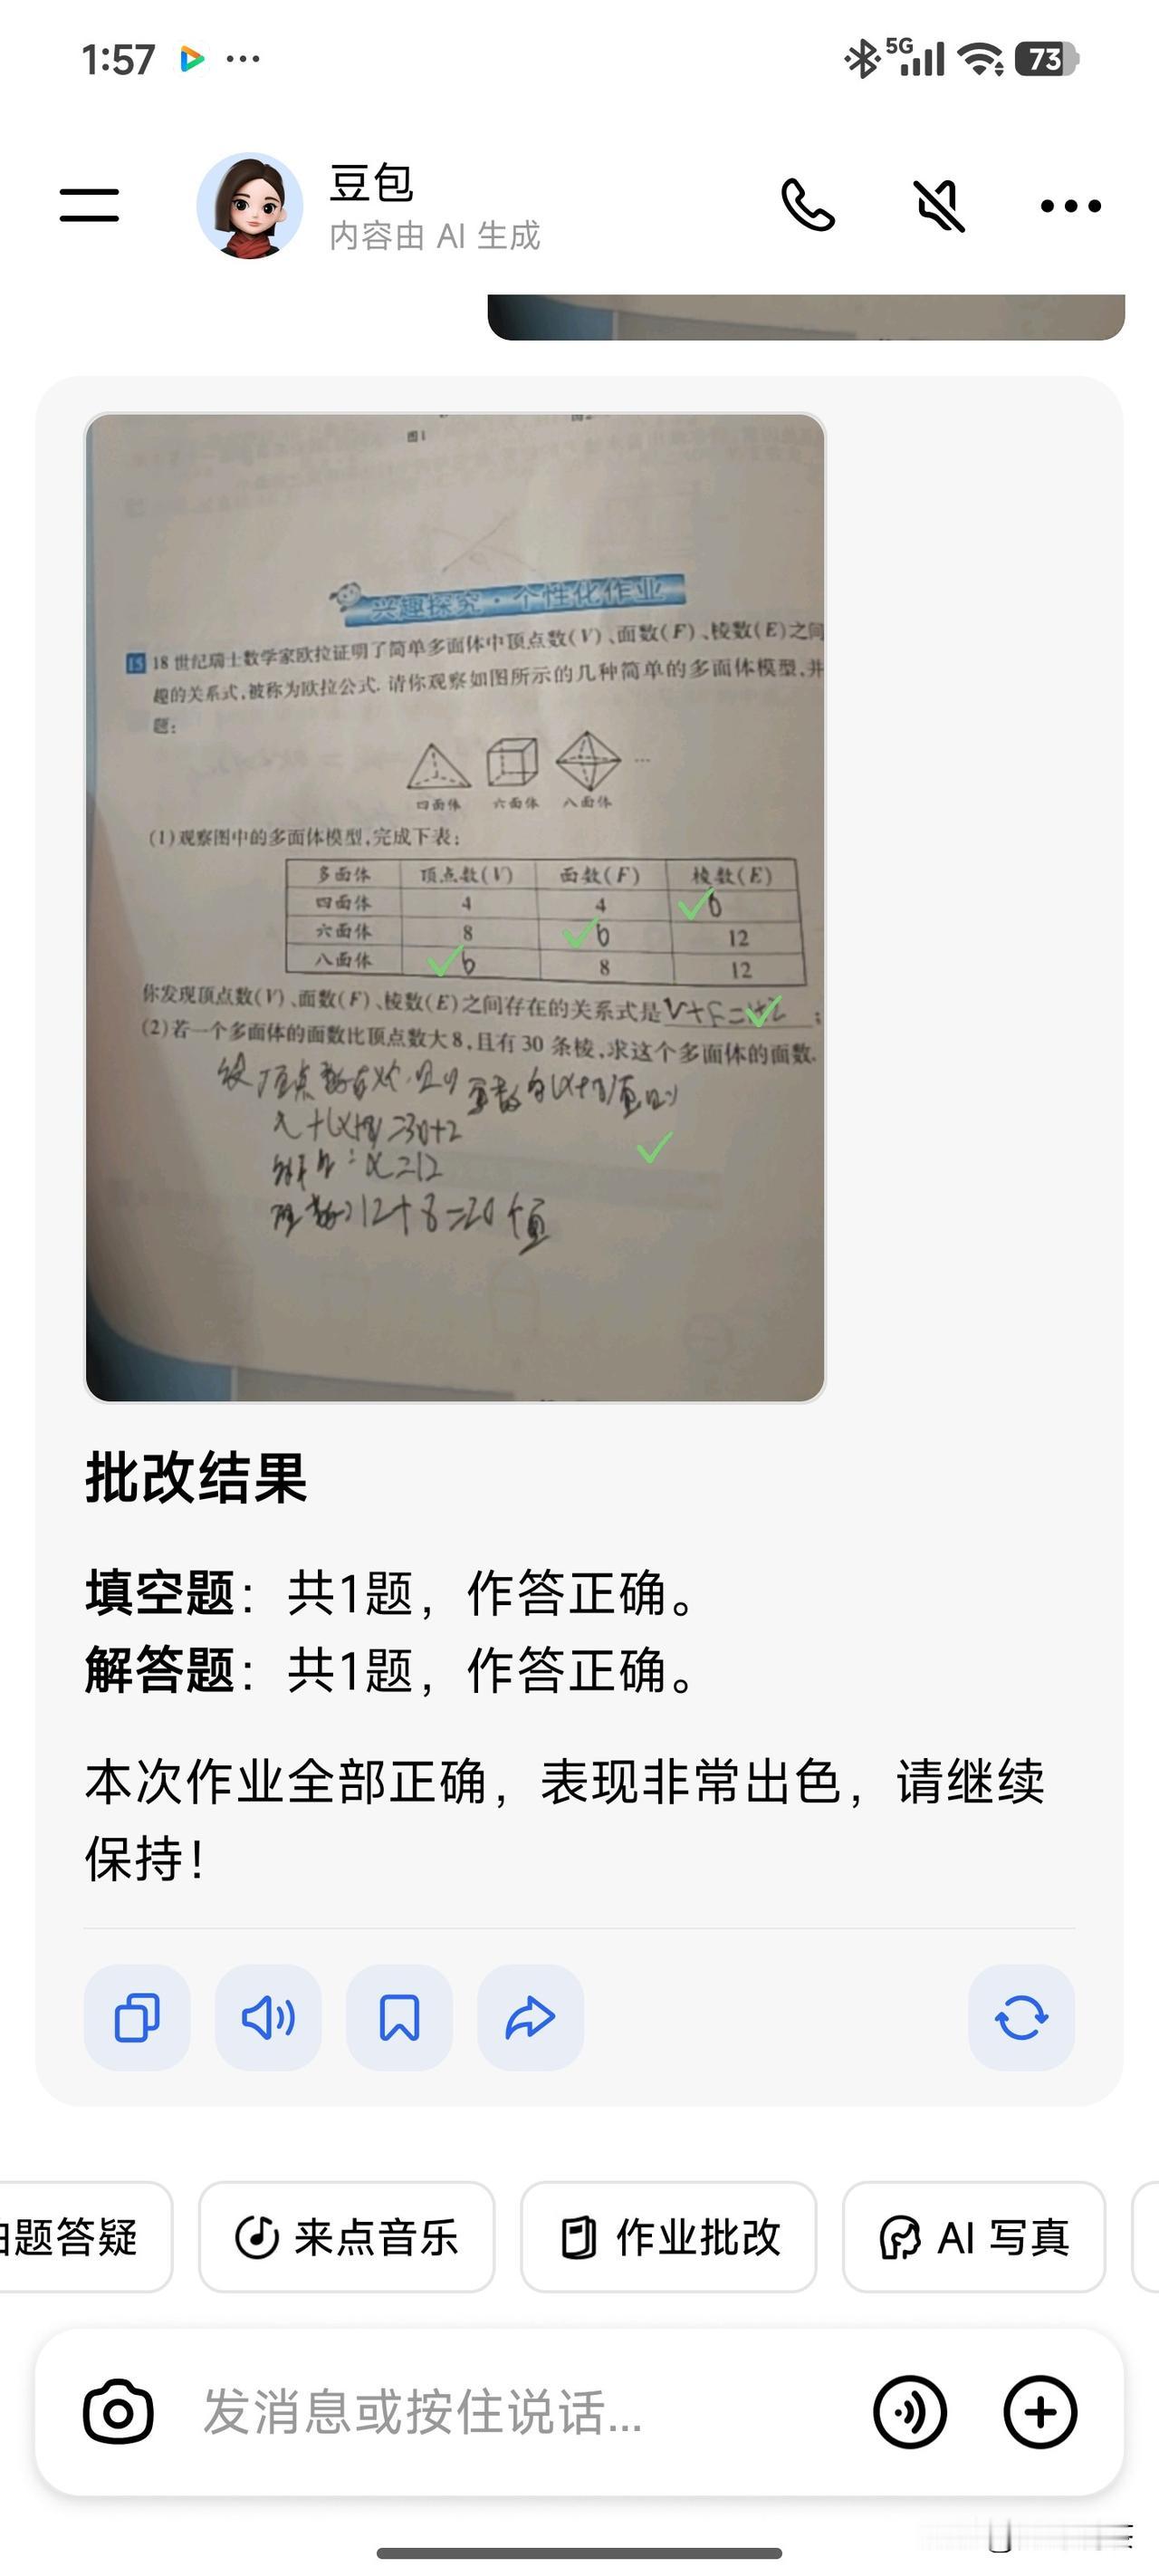 1:57 ... 5G 73
豆包
内容由 AI 生成
图1
兴趣探究·个性化作业
15 18 世纪瑞士数学家欧拉证明了简单多面体中顶点数(V)、面数(F)、棱数(E)之间
趣的关系式,被称为欧拉公式. 请你观察如图所示的几种简单的多面体模型,并
题:
四面体 六面体 八面体 ...
(1)观察图中的多面体模型,完成下表:
多面体 顶点数(V) 面数(F) 棱数(E)
四面体 4 4 6
六面体 8 6 12
八面体 6 8 12
你发现顶点数(V)、面数(F)、棱数(E)之间存在的关系式是V+F= ;
(2)若一个多面体的面数比顶点数大8,且有30条棱,求这个多面体的面数.
x+(x+8)=30+2
x=12
12+8=20
批改结果
填空题：共1题，作答正确。
解答题：共1题，作答正确。
本次作业全部正确，表现非常出色，请继续
保持！
题答疑 来点音乐 作业批改 AI 写真
发消息或按住说话...